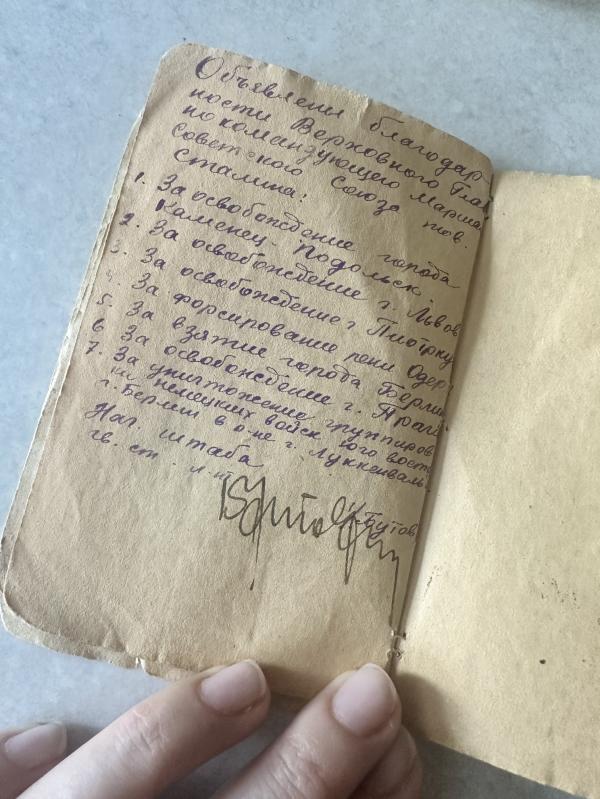 Объявлены благодар-
ности Верховного Глав-
нокомандующего Марша
Советского Союза тов.
Сталина:
1. За освобождение города
Каменец-Подольск.
2. За освобождение г. Львов
3. За освобождение г. Пиотрку
4. За форсирование реки Одер
5. За взятие города Берлин
6. За освобождение г. Прага
7. За уничтожение группиров
ки немецких войск юго вост
г. Берлин в р-не г. Луккенваль
Нач. штаба
гв. ст. л-нт
Бутов